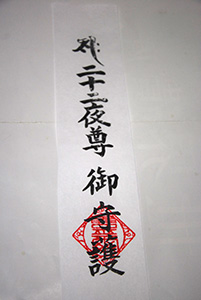 二十三夜尊 御守護